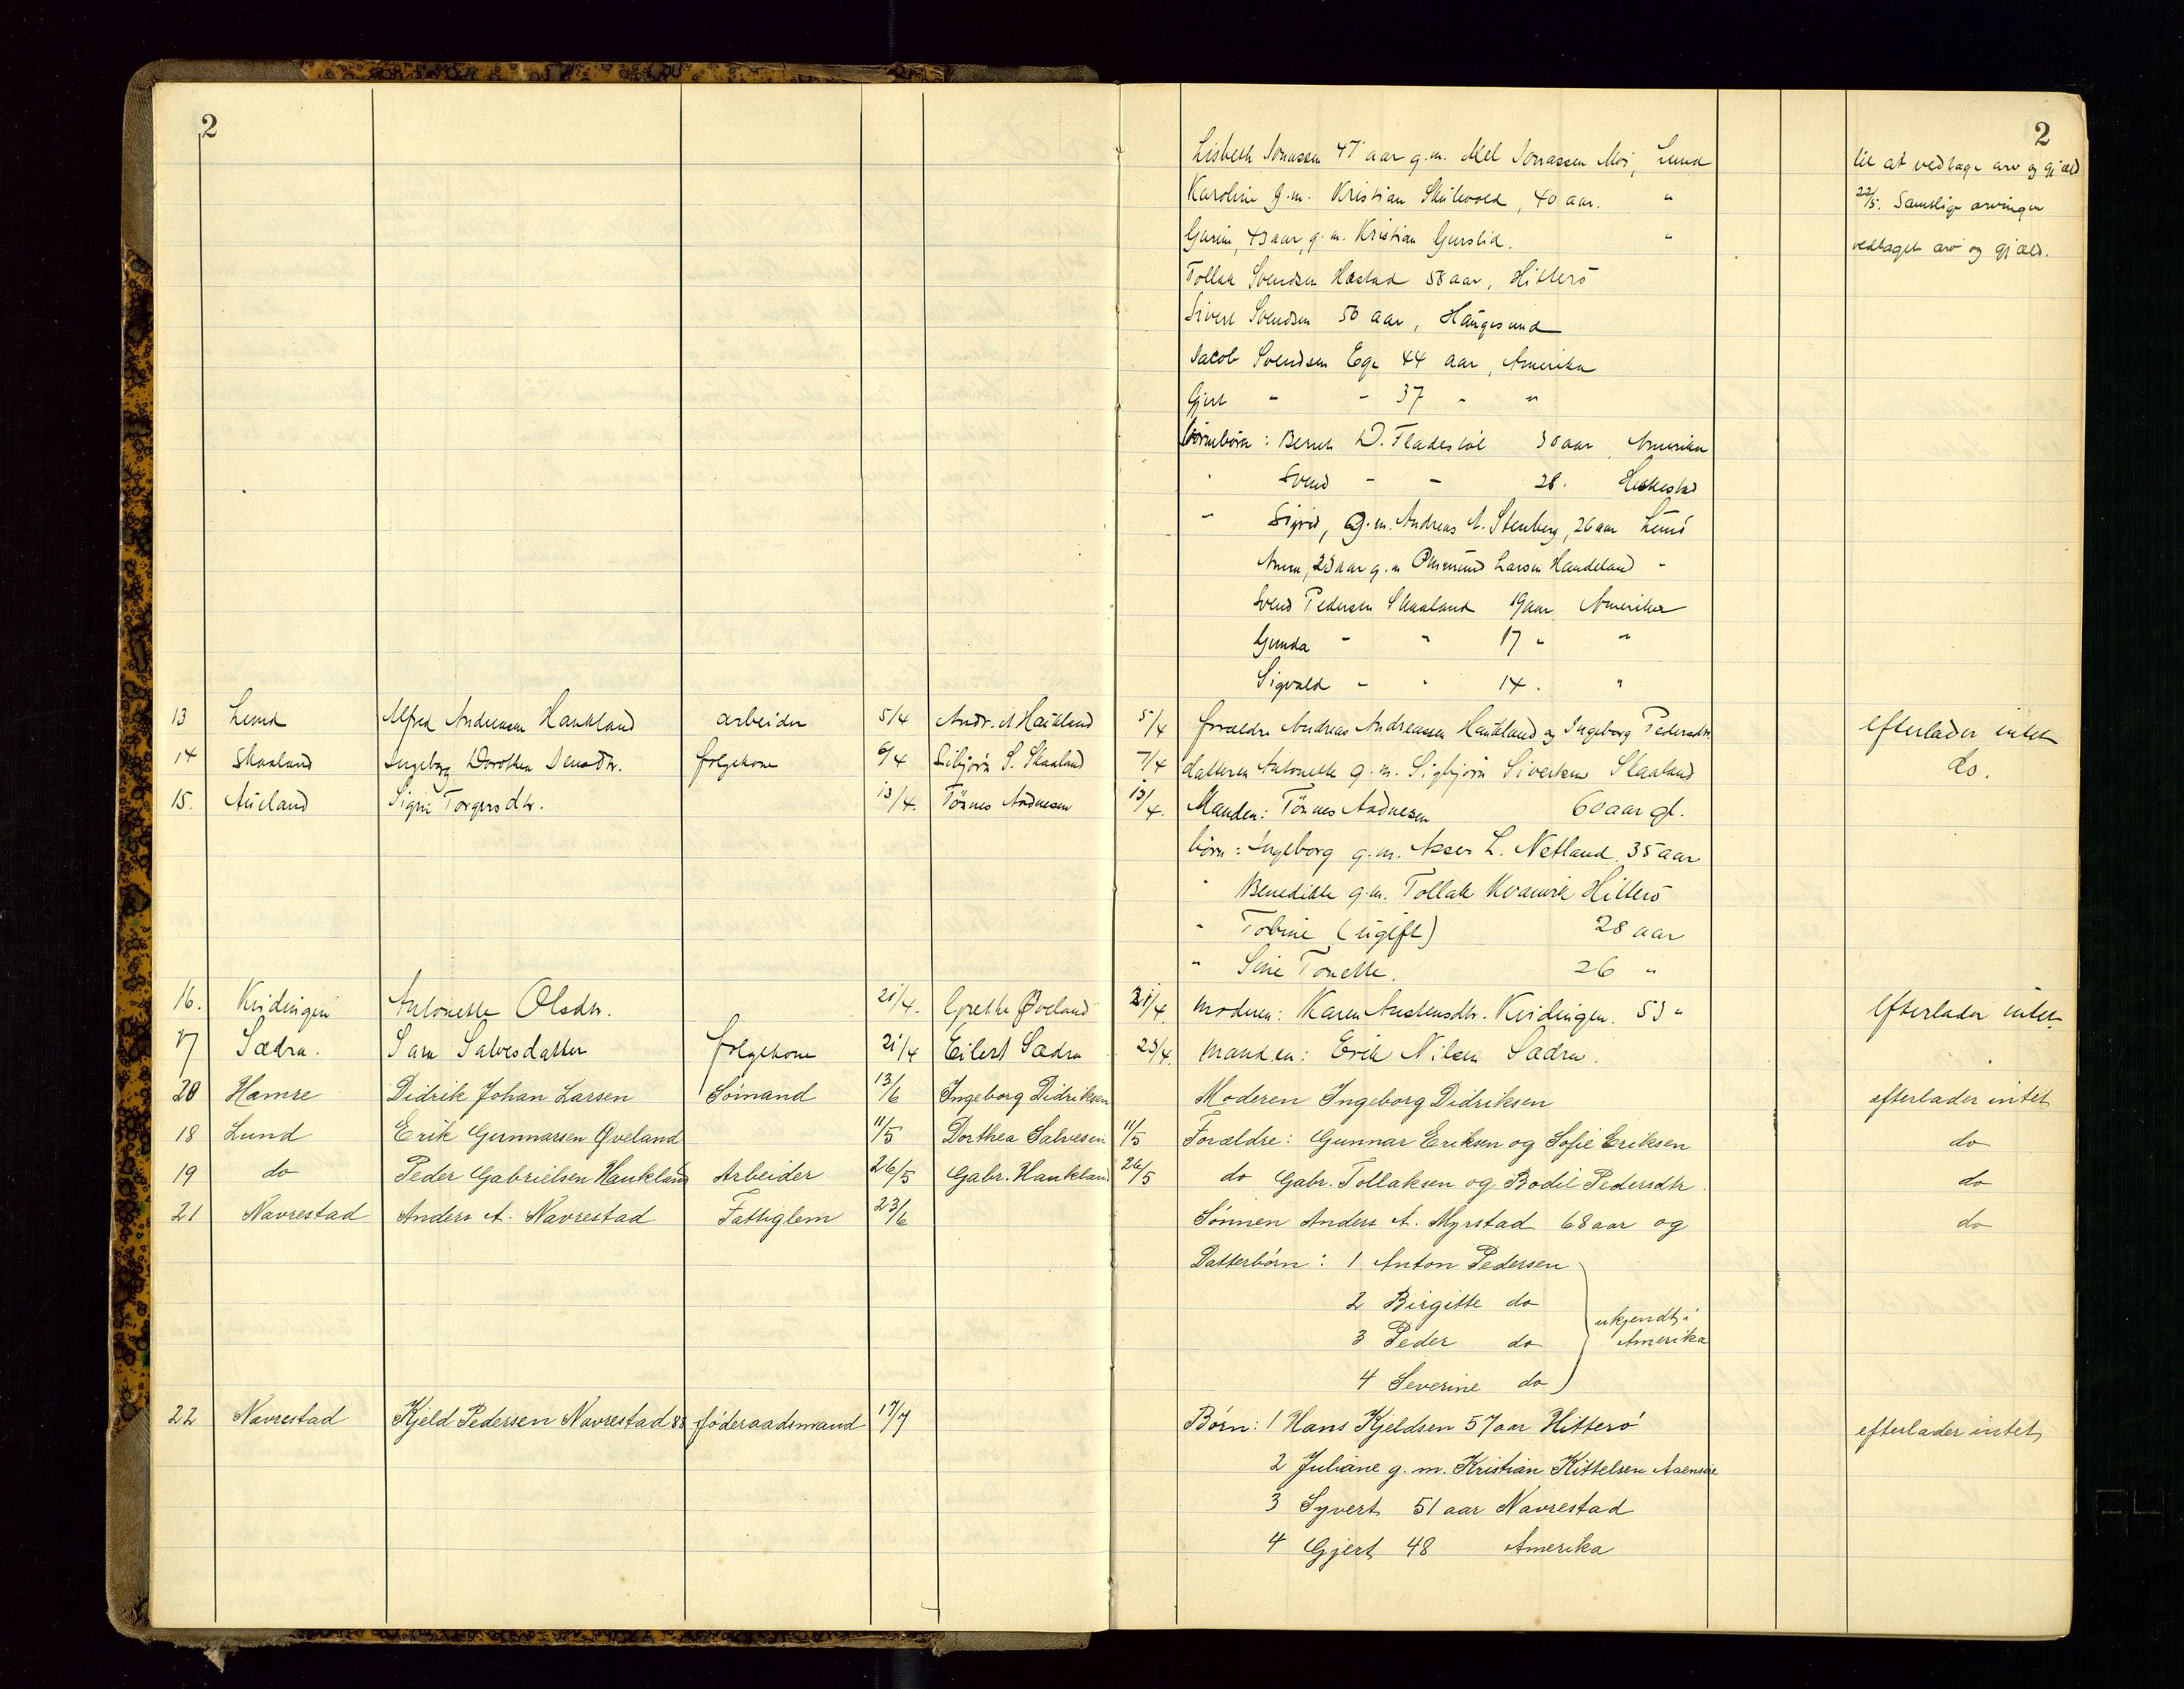 2
2
Lisbeth Jonassen 47 aar g.m. Mel Jonassen Moi, Lund
til at vedtage arv og gjæld
Karoline g.m. Kristian Skulevold, 40 aar. "
22/5. Samtlige arvinger
Gurine, 43 aar, g.m. Kristian Gurslid. "
vedtaget arv og gjæld.
Tollak Svendsen Hæstad 58 aar, Hitterö
Sivert Svendsen 50 aar, Haugesund
Jacob Svendsen Ege 44 aar, Amerika
Gjert - - 37 - "
börnebörn: Bernt D. Fladestöl 30 aar, Amerika
" Svend - - 28. Heskestad
" Sigrid, g.m. Andreas A. Stenberg, 26 aar Lund
Anna, 23 aar g.m Ommund Larsen Handeland "
Svend Pedersen Skaaland 19 aar Amerika
Gunda - " 17 - "
Sigvald - " 14. "
13 Lund Alfred Andreasen Haukland arbeider 5/4 Andr. A Haukland 5/4 foreldre Andreas Andreassen Haukland og Ingeborg Pedersdtr efterlader intet
14 Skaaland Ingeborg Dorothea folgekone 6/4 Sibjörn S. Skaaland 7/4 datteren Antonette g.m. Sigbjörn Sivertsen Skaaland do.
15. Aueland Signe Torgersdtr. 13/4. Tönnes Aadnesen 13/4. Manden: Tönnes Aadnesen 60 aar gl.
börn: Ingeborg g.m. Asser L. Netland. 35 aar
" Benedikte g.m. Tollak Kvanvik Hitterö
" Tobine (ugift) 28 aar
" Sine Tonette. 26 "
16. Kvidingen Antonette Olsdtr. 21/4. Grethe Öveland 21/4. moderen: Karen Austensdtr. Kvidingen. 53 " efterlader intet.
17 Sædra. Sara Salvesdatter folgekone 21/4 Eilert Sædra 23/4. manden: Erik Nilsen Sædra. "
20 Hamre Didrik Johan Larsen Sömand 13/6 Ingeborg Didriksen Moderen Ingeborg Didriksen efterlader intet
18 Lund Erik Gunnarsen Øveland 11/5 Dorthea Salvesen 11/5 Forældre: Gunnar Eriksen og Sofie Eriksen do
19 do Peder Gabrielsen Haukland Arbeider 26/5 Gabr. Haukland 26/5 do Gabr. Tollaksen og Bodil Pedersdtr. do
21 Navrestad Anders A. Navrestad Fattiglem 23/6 Sønnen Anders A. Myrstad 68 aar og do
Datterbørn: 1 Anton Pedersen
2 Birgitte do
ukjendt i
3 Peder do
Amerika
4 Severine do
22 Navrestad Kjeld Pedersen Navrestad 88 föderaadsmand 17/7 Børn: 1 Hans Kjeldsen 57 aar Hitterö efterlader intet
2 Juliane g.m. Kristian Kittelsen Aaensire
3 Syvert 51 aar Navrestad
4 Gjert 48 Amerika